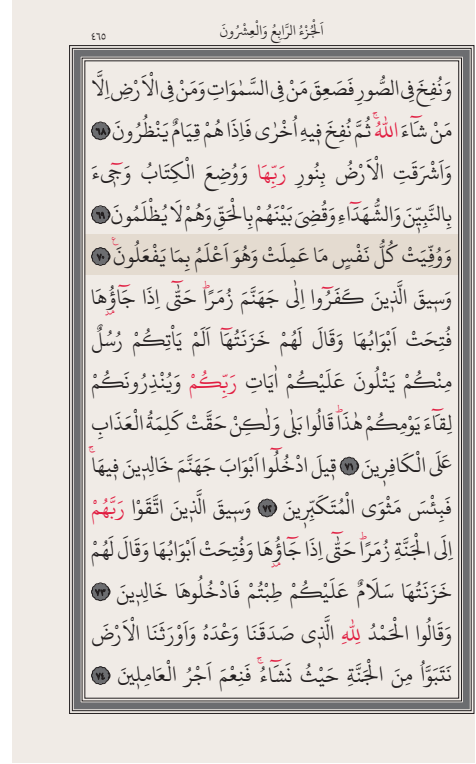 اَلْجُزْءُ الرَّابِعُ وَالْعِشْرُونَ
٤٦٥
وَنُفِخَ فِي الصُّورِ فَصَعِقَ مَنْ فِي السَّمٰوَاتِ وَمَنْ فِي الْاَرْضِ اِلَّا
مَنْ شَٓاءَ اللّٰهُۜ ثُمَّ نُفِخَ فٖيهِ اُخْرٰى فَاِذَا هُمْ قِيَامٌ يَنْظُرُونَ ﴿٦٨﴾
وَاَشْرَقَتِ الْاَرْضُ بِنُورِ رَبِّهَا وَوُضِعَ الْكِتَابُ وَجٖٓيءَ
بِالنَّبِيّٖنَ وَالشُّهَدَٓاءِ وَقُضِيَ بَيْنَهُمْ بِالْحَقِّ وَهُمْ لَا يُظْلَمُونَ ﴿٦٩﴾
وَوُفِّيَتْ كُلُّ نَفْسٍ مَا عَمِلَتْ وَهُوَ اَعْلَمُ بِمَا يَفْعَلُونَࣖ ﴿٧٠﴾
وَسٖيقَ الَّذٖينَ كَفَرُٓوا اِلٰى جَهَنَّمَ زُمَرًاۜ حَتّٰٓى اِذَا جَٓاؤُ۫هَا
فُتِحَتْ اَبْوَابُهَا وَقَالَ لَهُمْ خَزَنَتُهَٓا اَلَمْ يَأْتِكُمْ رُسُلٌ
مِنْكُمْ يَتْلُونَ عَلَيْكُمْ اٰيَاتِ رَبِّكُمْ وَيُنْذِرُونَكُمْ
لِقَٓاءَ يَوْمِكُمْ هٰذَاۜ قَالُوا بَلٰى وَلٰكِنْ حَقَّتْ كَلِمَةُ الْعَذَابِ
عَلَى الْكَافِرٖينَ ﴿٧١﴾ قٖيلَ ادْخُلُٓوا اَبْوَابَ جَهَنَّمَ خَالِدٖينَ فٖيهَاۚ
فَبِئْسَ مَثْوَى الْمُتَكَبِّرٖينَ ﴿٧٢﴾ وَسٖيقَ الَّذٖينَ اتَّقَوْا رَبَّهُمْ
اِلَى الْجَنَّةِ زُمَرًاۜ حَتّٰٓى اِذَا جَٓاؤُ۫هَا وَفُتِحَتْ اَبْوَابُهَا وَقَالَ لَهُمْ
خَزَنَتُهَا سَلَامٌ عَلَيْكُمْ طِبْتُمْ فَادْخُلُوهَا خَالِدٖينَ ﴿٧٣﴾
وَقَالُوا الْحَمْدُ لِلّٰهِ الَّذٖي صَدَقَنَا وَعْدَهُ وَاَوْرَثَنَا الْاَرْضَ
نَتَبَوَّأُ مِنَ الْجَنَّةِ حَيْثُ نَشَٓاءُۚ فَنِعْمَ اَجْرُ الْعَامِلٖينَ ﴿٧٤﴾